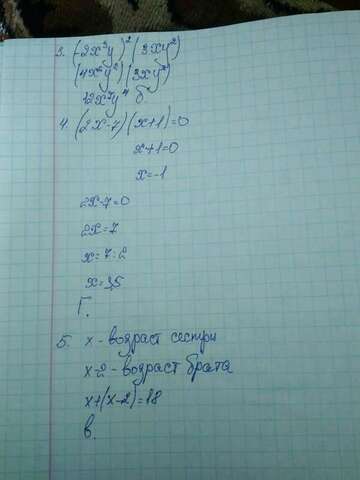 3. (-2x³y)² (3xy²)
(4x⁶y²) (3xy²)
12x⁷y⁴ б.
4. (2x-7)(x+1)=0
x+1=0
x=-1
2x-7=0
2x=7
x=7:2
x=3,5
Г.
5. x - возраст сестры
x-2 - возраст брата
x+(x-2)=18
в.